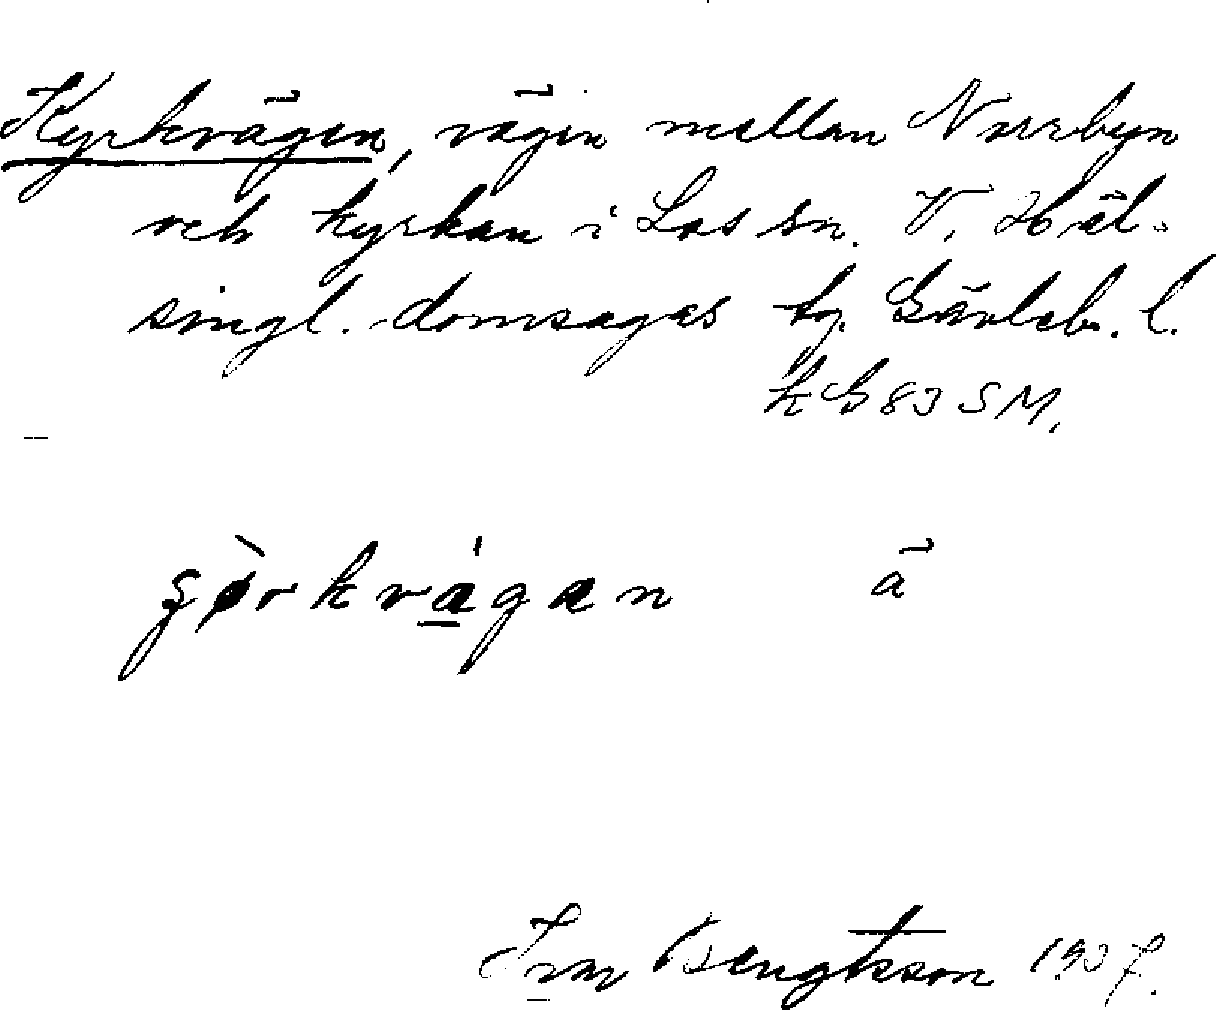 Kyrkvägen, vägen mellan Norrbyn
och kyrkan i Los sn. V. Häl-
singl. domsagas tg. Gävleb. l.
KG 83 SM.
ā
Bengtsson 1937.